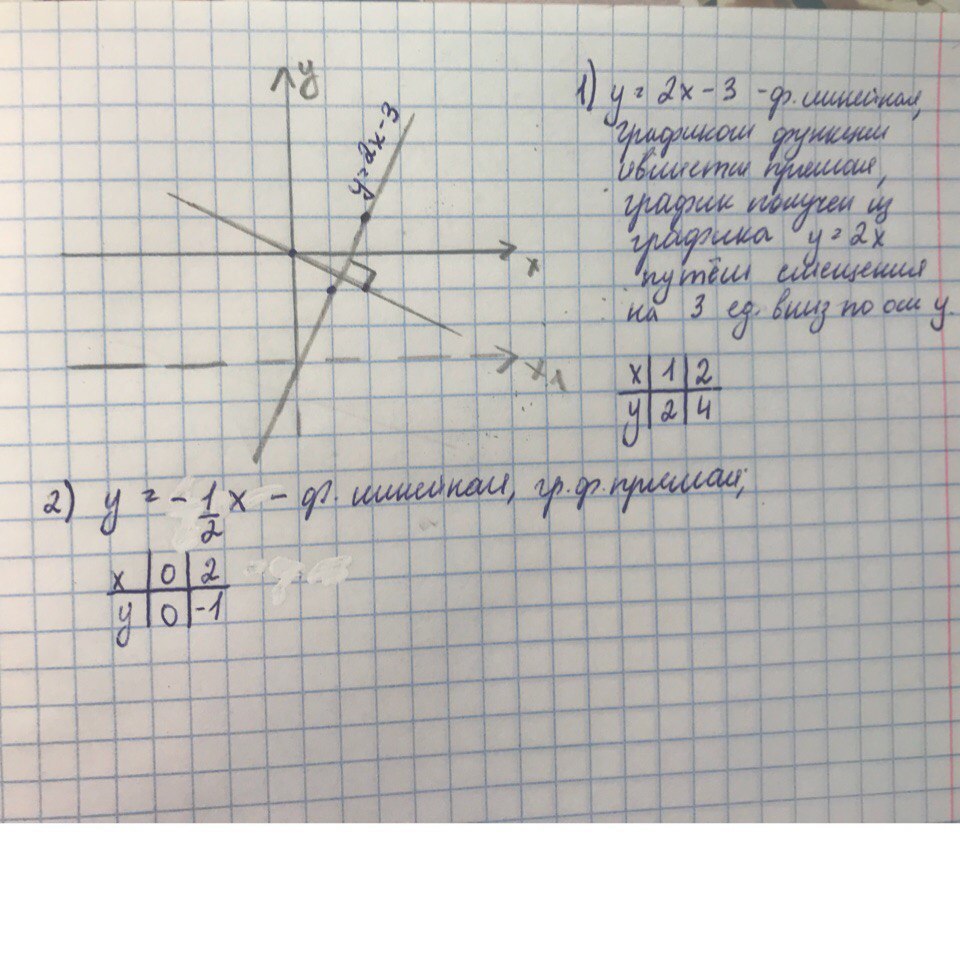 y
y=2x-3
x
x₁
1) y = 2x - 3 - ф. линейная,
графиком функции
является прямая,
график получен из
графика y = 2x
путём смещения
на 3 ед. вниз по оси y.
x | 1 | 2
y | 2 | 4
2) y = -1/2 x - ф. линейная, гр. ф. прямая,
x | 0 | 2
y | 0 | -1